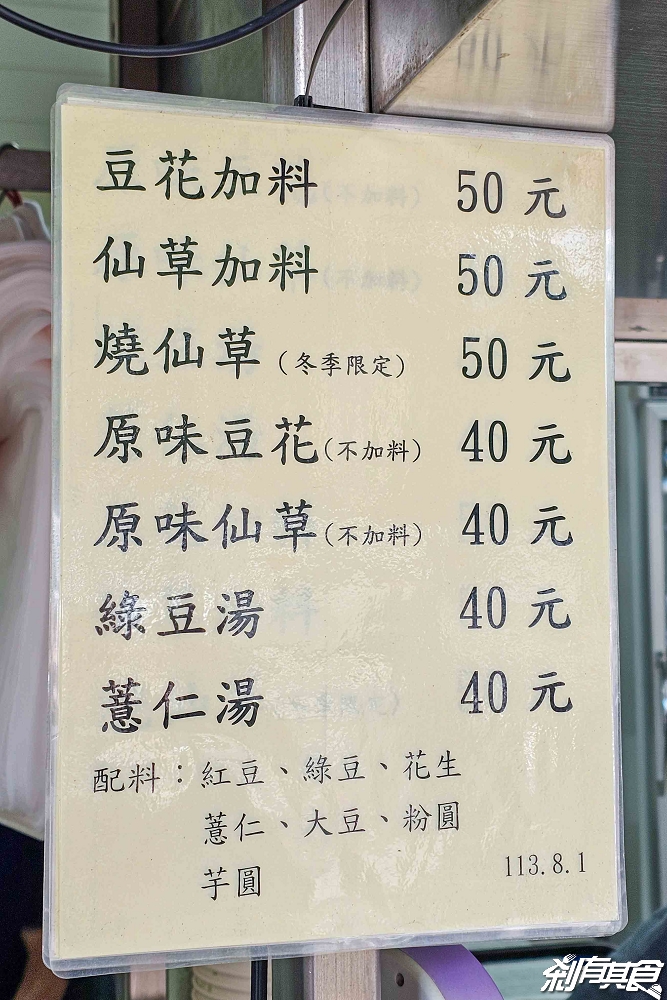 豆花加料 50 元
仙草加料 50 元
燒仙草(冬季限定) 50 元
原味豆花(不加料) 40 元
原味仙草(不加料) 40 元
綠豆湯 40 元
薏仁湯 40 元
配料：紅豆、綠豆、花生
薏仁、大豆、粉圓
芋圓
113.8.1
剎有其食